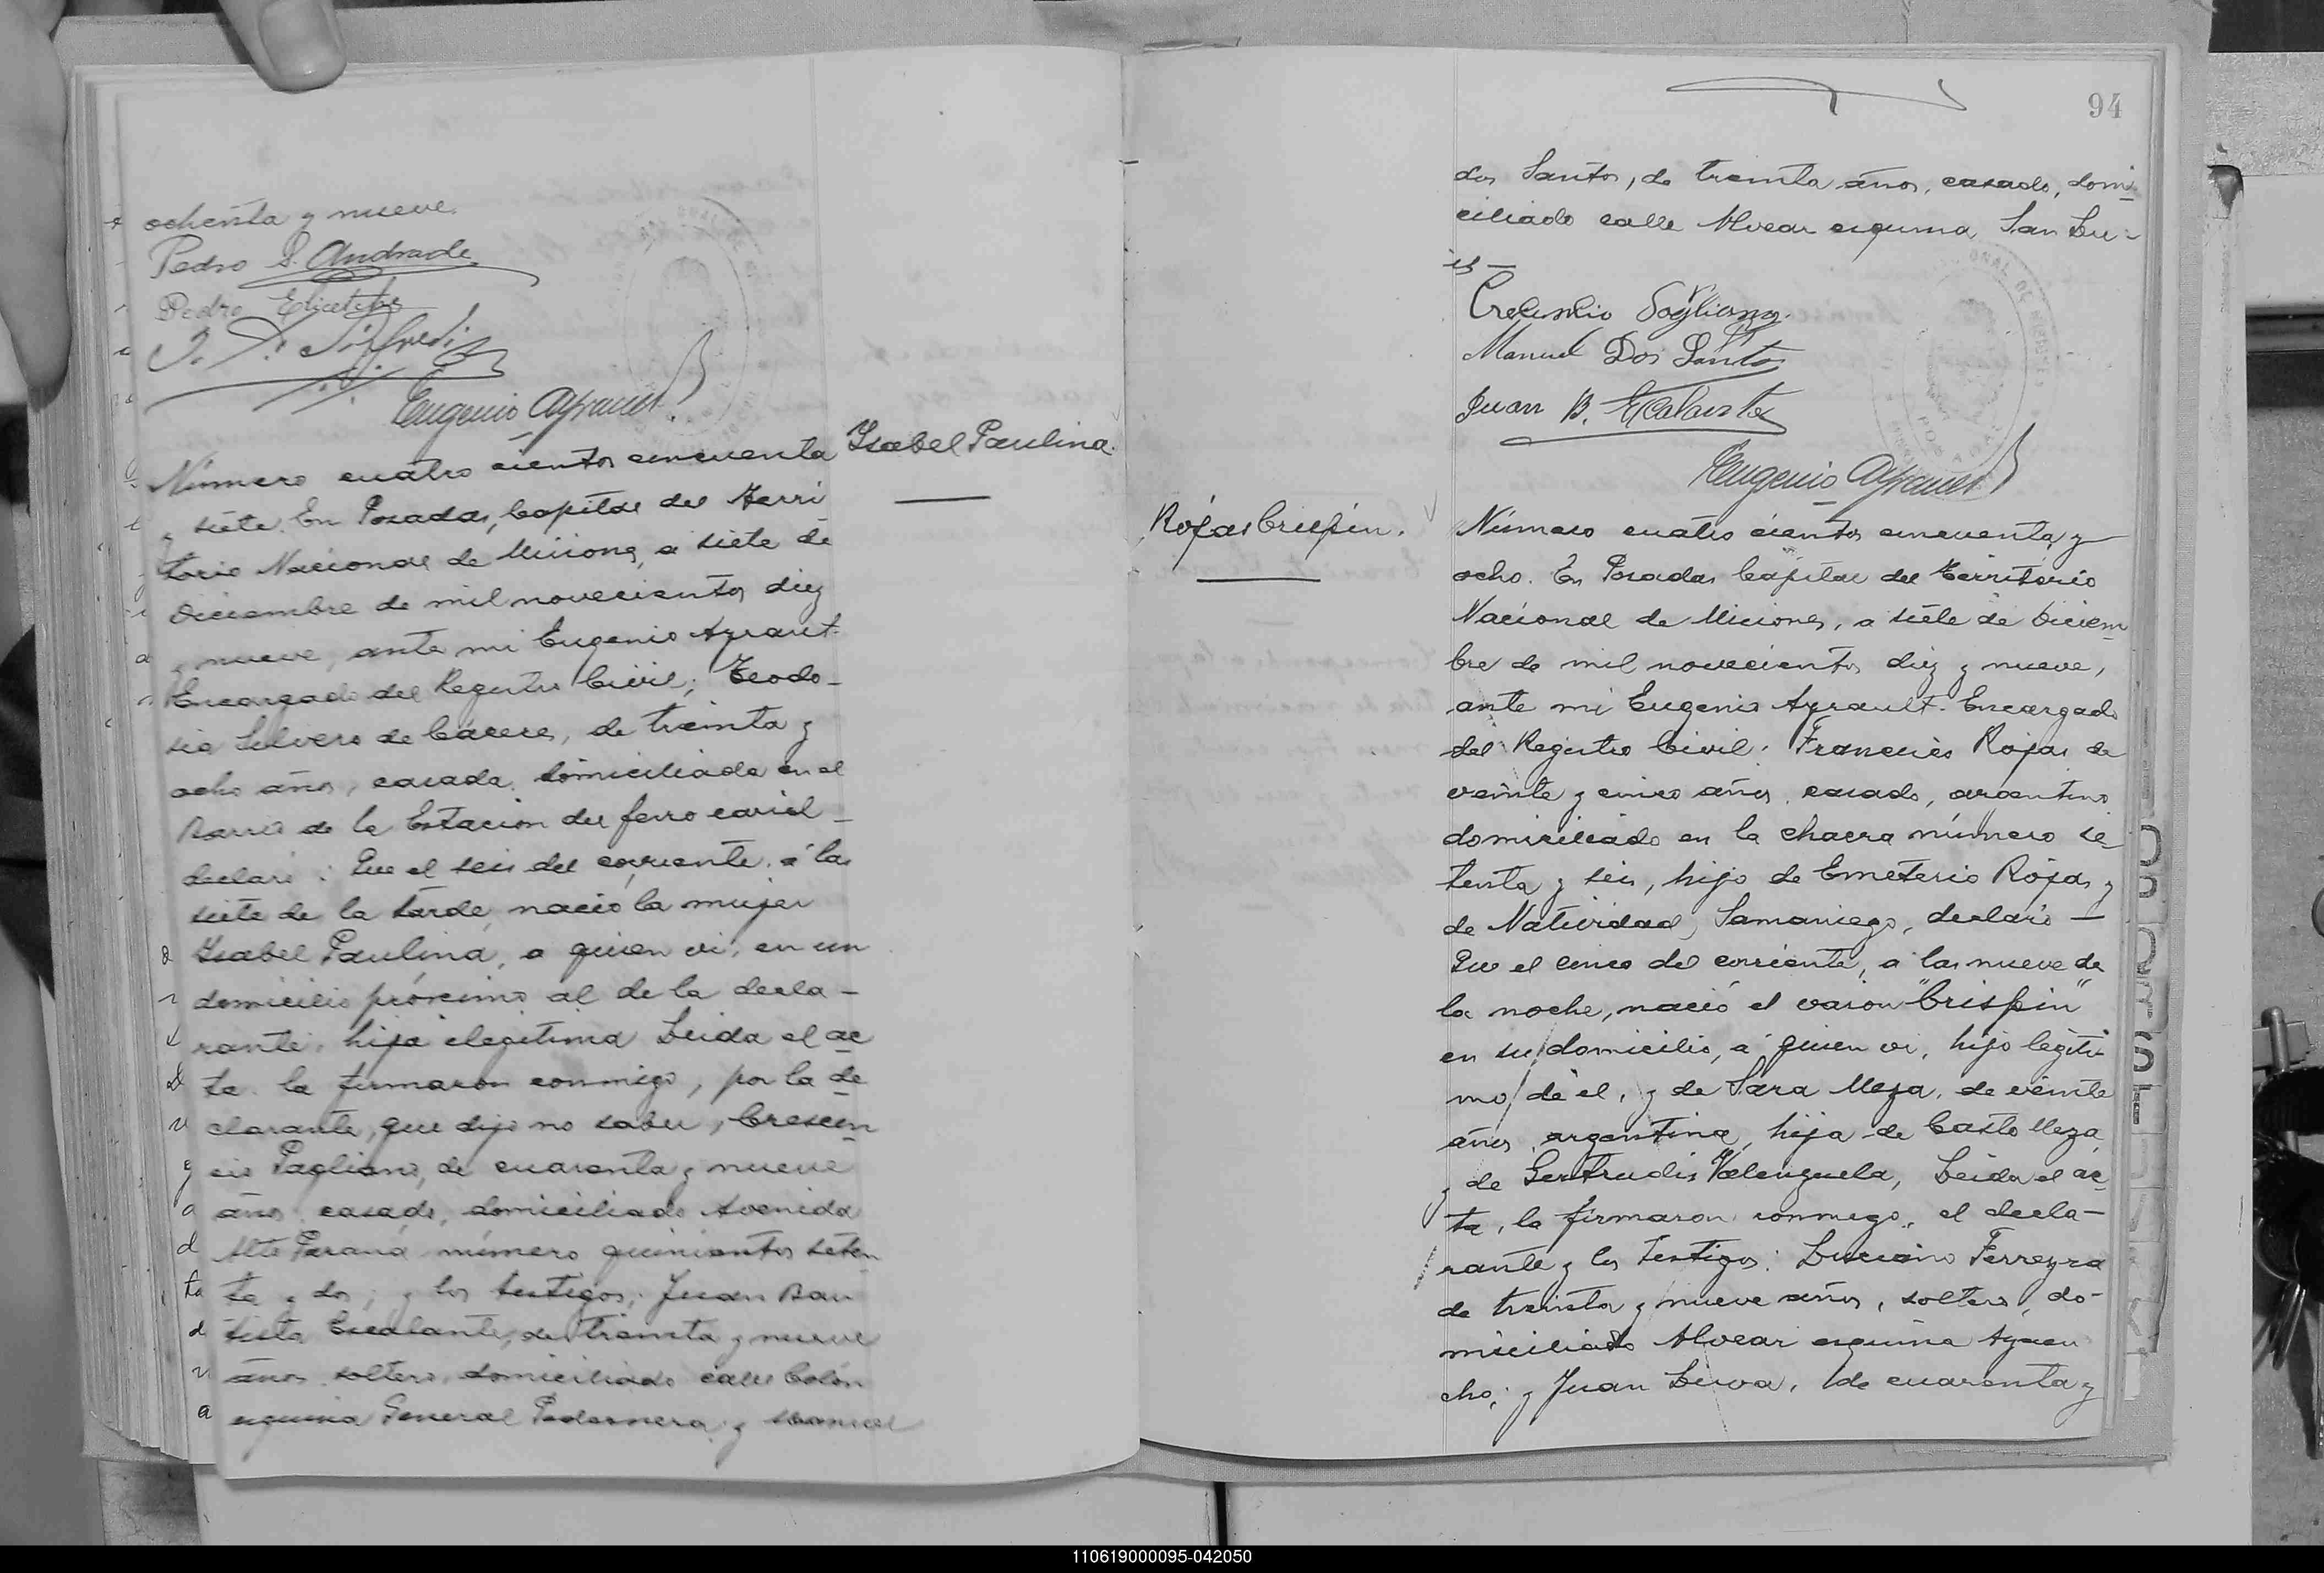 ochenta y nueve.
Pedro S. Andrade
Pedro
Eugenio Ayrault
Número cuatro cientos cincuenta
Isabel Paulina.
y siete. En Posadas, Capital del Terri
torio Nacional de Misiones, a siete de
Diciembre de mil novecientos diez
y nueve, ante mi Eugenio Ayrault
Encargado del Registro Civil; Teodo-
sia Silvero de Cácere, de treinta y
ocho años, casada, domiciliada en el
Barrio de la Estacion del ferro carril -
declaró: Que el seis del corriente, á las
siete de la tarde, nació la mujer
Isabel Paulina, a quien vi, en un
domicilio próximo al de la decla-
rante, hija ilegitima Leida el ac
ta la firmaron conmigo, por la de
clarante, que dijo no saber, Crescen
cio Pagliano, de cuarenta y nueve
años, casado, domiciliado Avenida
Alto Paraná número quinientos seten
ta y dos; y los testigos; Juan Bau
tista Escalante, de treinta y nueve
años, soltero, domiciliado calle Colón
esquina General Padernera, y Manuel
94
dos Santos, de treinta años, casado, domi-
ciliado calle Alvear esquina San Lu-
is —
Crecencio Pogliano.
Manuel Dos Santos
Juan B. Escalante
Eugenio Ayrault
Rojas Crispin.
Número cuatro cientos cincuenta y
ocho. En Posadas Capital del Territorio
Nacional de Misiones, a siete de Diciem
bre de mil novecientos diez y nueve,
ante mi Eugenio Ayrault. Encargado
del Registro Civil: Francisco Rojas de
veinte y cinco años, casado, argentino
domiciliado en la chacra número se
tenta y seis, hijo de Emeterio Rojas y
de Natividad Samaniego, declaró —
Que el cinco del corriente, a las nueve de
la noche, nació el varon "Crispin"
en su domicilio, á quien vi, hijo legíti
mo de él, y de Sara Meza, de veinte
años, argentina, hija de Casto Meza
y de Gertrudis Valenzuela, Leida el ac
ta, la firmaron conmigo, el decla-
rante y los testigos: Luciano Ferreyra
de treinta y nueve años, soltero, do-
miciliado Alvear esquina Ayacu
cho; y Juan Leiva, de cuarenta y
110619000095-042050